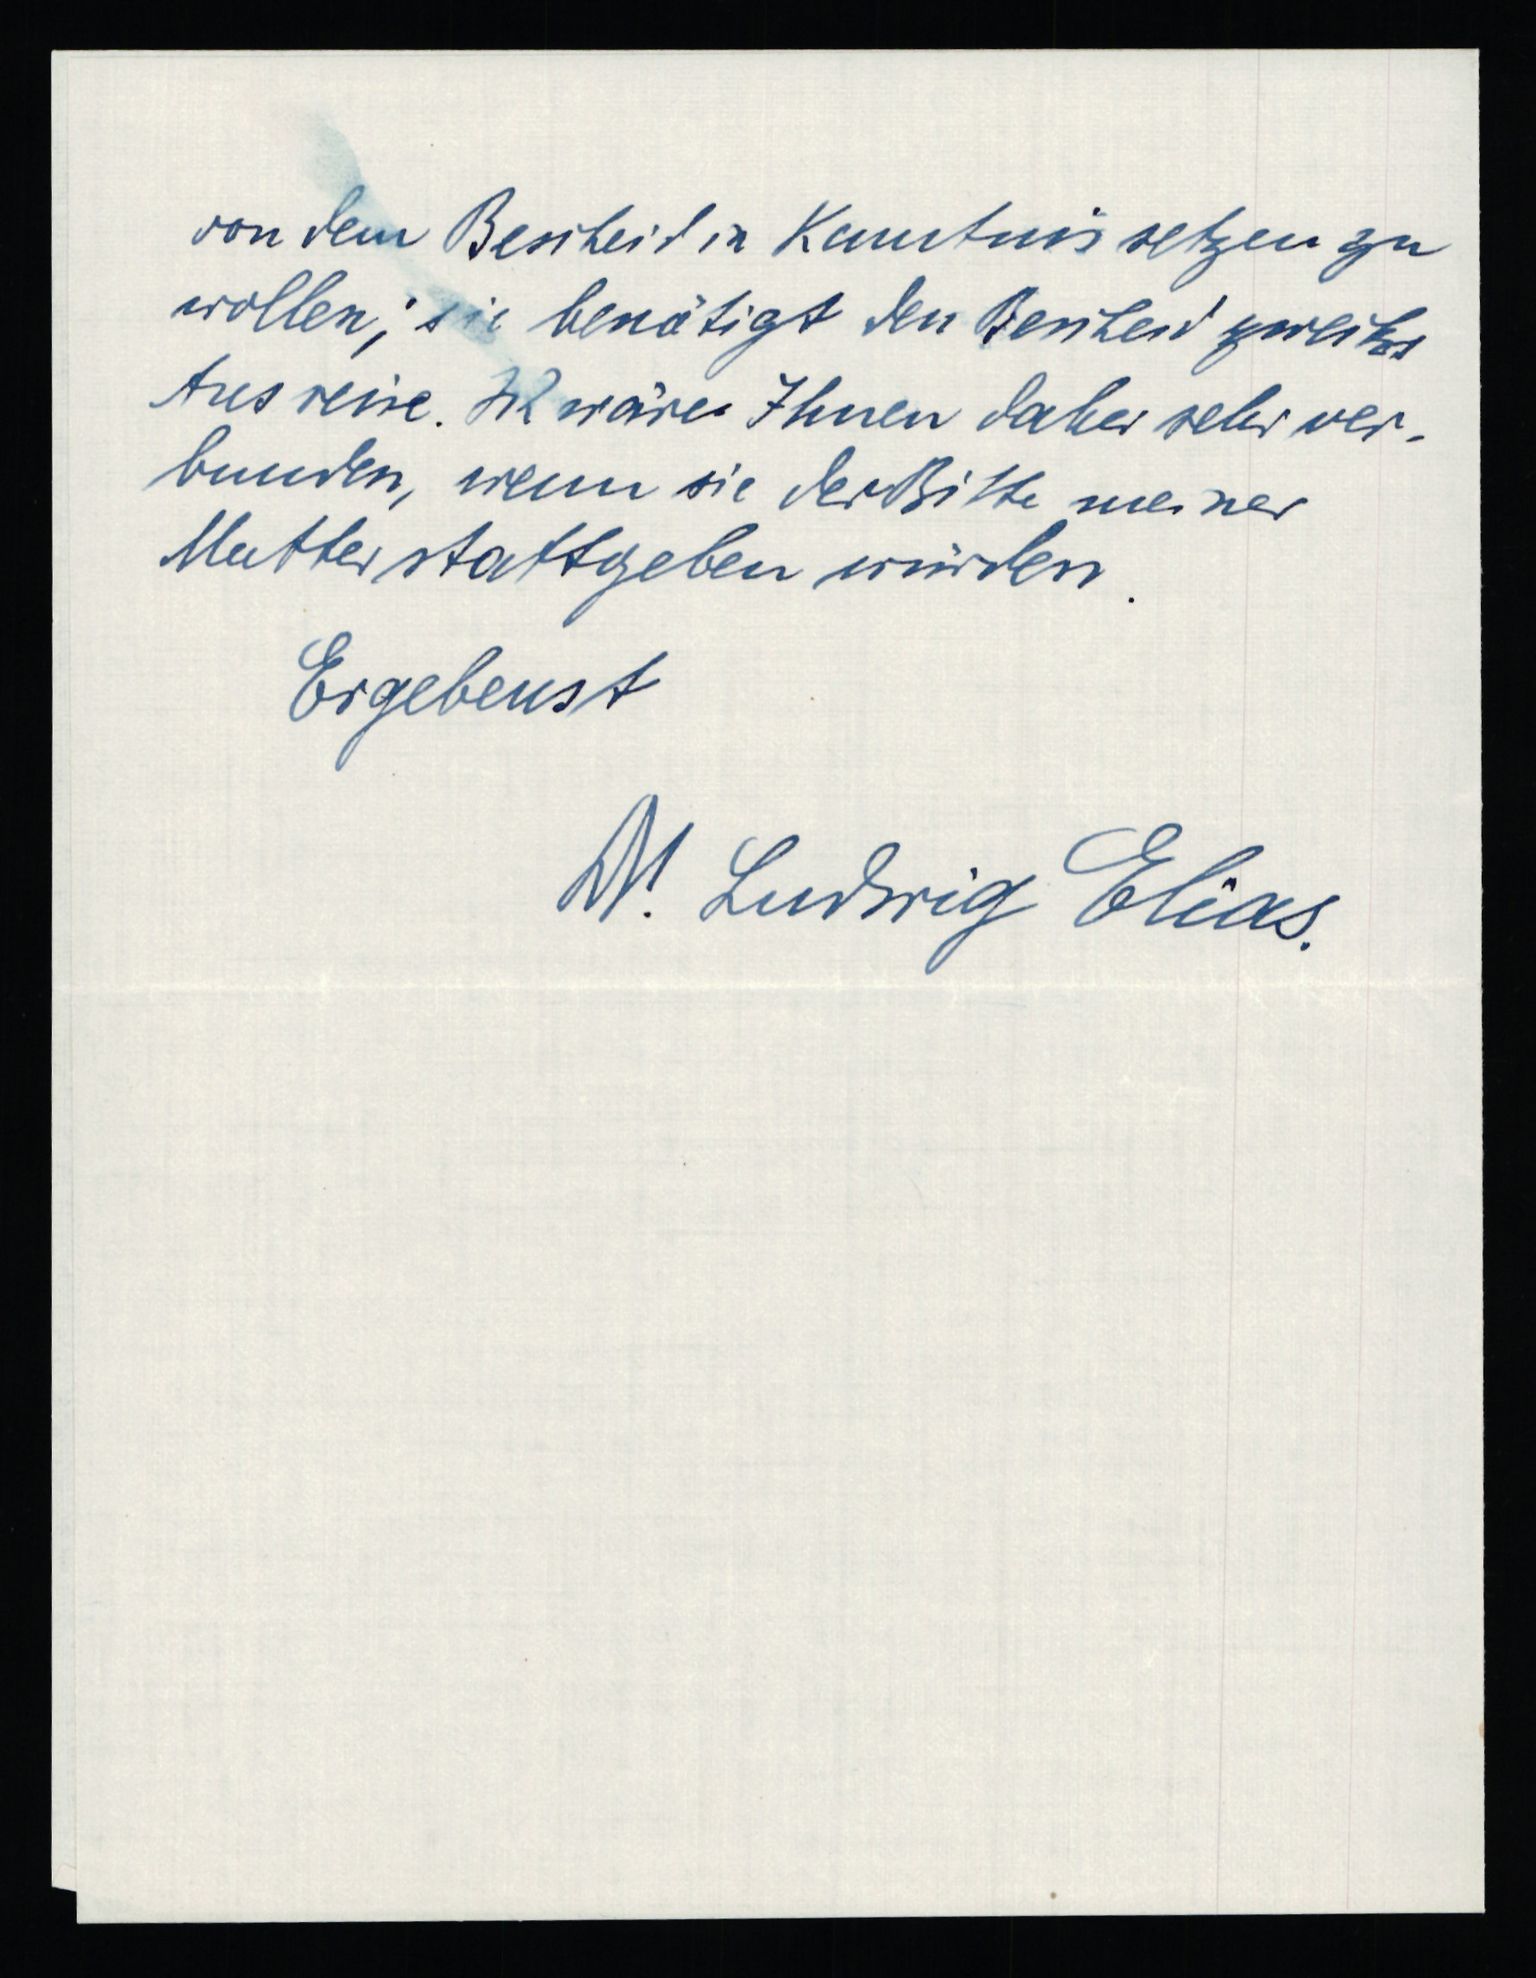 von dem Bescheid in Kenntnis setzen zu
wollen; sie benötigt den Bescheid zwecks
Ausreise. Ich wäre Ihnen daher sehr ver-
bunden, wenn sie der Bitte meiner
Mutter stattgeben würden.
Ergebenst
Dr. Ludwig Elias.